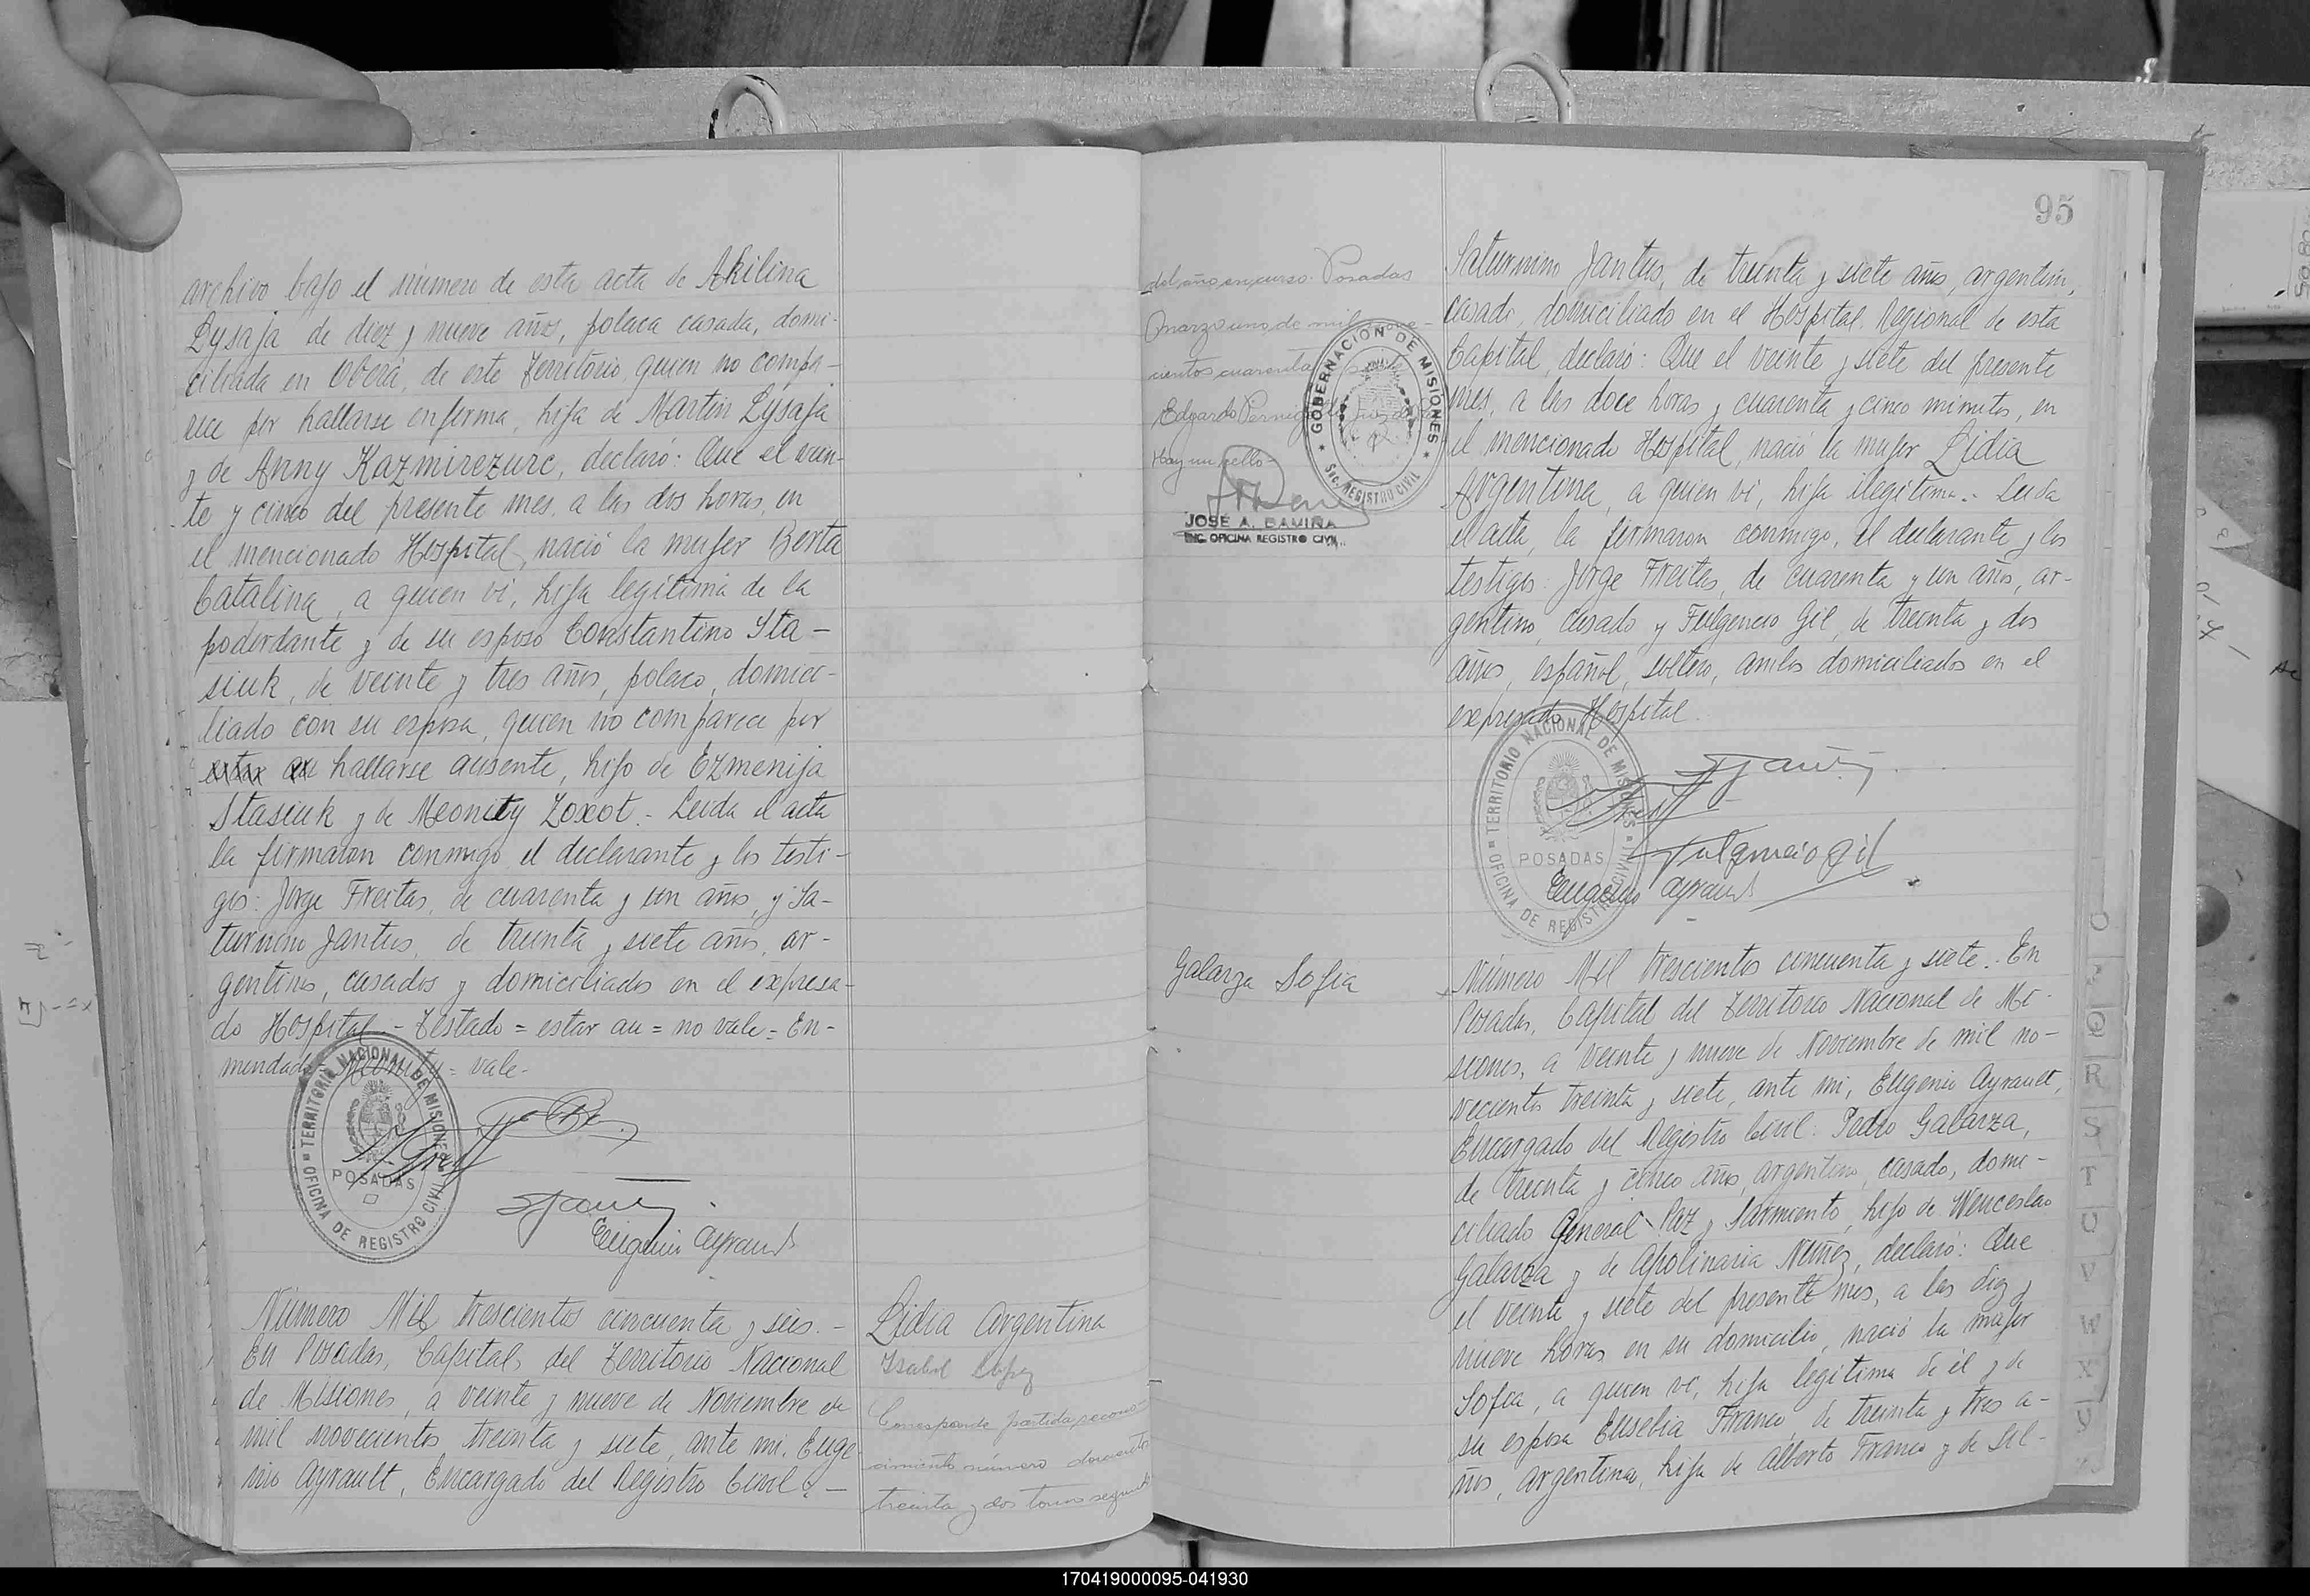 archivo bajo el número de esta acta de Akilina
Lysaja de diez y nueve años, polaca casada, domi-
ciliada en Oberá, de este Territorio, quien no compa-
rece por hallarse enferma, hija de Martin Lysaja
y de Anny Kazmirezurc, declaró: Que el vein-
te y cinco del presente mes, a las dos horas, en
el mencionado Hospital, nació la mujer Berta
Catalina, a quien vi, hija legítima de la
poderdante y de su esposo Constantino Sta-
siuk, de veinte y tres años, polaco, domici-
liado con su esposa, quien no comparece por
estar au hallarse ausente, hijo de Ezmenija
Stasiuk y de Meonity Zoxot.- Leida el acta
la firmaron conmigo el declarante y los testi-
gos: Jorge Freitas, de cuarenta y un años, y Sa-
turnino Jantus, de treinta y siete años, ar-
gentinos, casados y domiciliados en el expresa-
do Hospital - Testado = estar au = no vale = En-
mendado = Meonity = vale.-
TERRITORIO NACIONAL DE MISIONES
POSADAS
OFICINA DE REGISTRO CIVIL
Eugenio Ayrault
Número Mil trescientos cincuenta y seis.-
En Posadas, Capital del Territorio Nacional
de Misiones, a veinte y nueve de Noviembre de
mil novecientos treinta y siete, ante mi, Euge-
nio Ayrault, Encargado del Registro Civil:-
Lidia Argentina
Isabel López
Corresponde partida recono-
cimiento número doscientos
treinta y dos tomo segundo
del año en curso. Posadas
Marzo uno de mil nove-
cientos cuarenta
Edgardo
Hay un sello-
GOBERNACION DE MISIONES
REGISTRO CIVIL
JOSÉ A. DAVIÑA
ENC. OFICINA REGISTRO CIVIL
95
Saturnino Jantus, de treinta y siete años, argentino,
casado, domiciliado en el Hospital Regional de esta
Capital, declaró: Que el veinte y siete del presente
mes, a las doce horas y cuarenta y cinco minutos, en
el mencionado Hospital, nació la mujer Lidia
Argentina, a quien vi, hija ilegítima.- Leida
el acta, la firmaron conmigo, el declarante y los
testigos: Jorge Freitas, de cuarenta y un años, ar-
gentino, casado y Fulgencio Gil, de treinta y dos
años, español, soltero, ambos domiciliados en el
expresado Hospital.
TERRITORIO NACIONAL DE MISIONES
POSADAS
OFICINA DE REGISTRO CIVIL
Fulgencio Gil
Eugenio Ayrault
Galarza Sofia
Número Mil trescientos cincuenta y siete.- En
Posadas, Capital del Territorio Nacional de Mi-
siones, a veinte y nueve de Noviembre de mil no-
vecientos treinta y siete, ante mi, Eugenio Ayrault,
Encargado del Registro Civil: Pedro Galarza,
de treinta y cinco años, argentino, casado, domi-
ciliado General Paz y Sarmiento, hijo de Wenceslao
Galarza y de Apolinaria Nuñez, declaró: Que
el veinte y siete del presente mes, a las diez y
nueve horas en su domicilio, nació la mujer
Sofia, a quien vi, hija legítima de él y de
su esposa Eusebia Franco, de treinta y tres a-
ños, argentina, hija de Alberto Franco y de Sil-
O
Q
R
S
T
U
V
W
X
Y
170419000095-041930